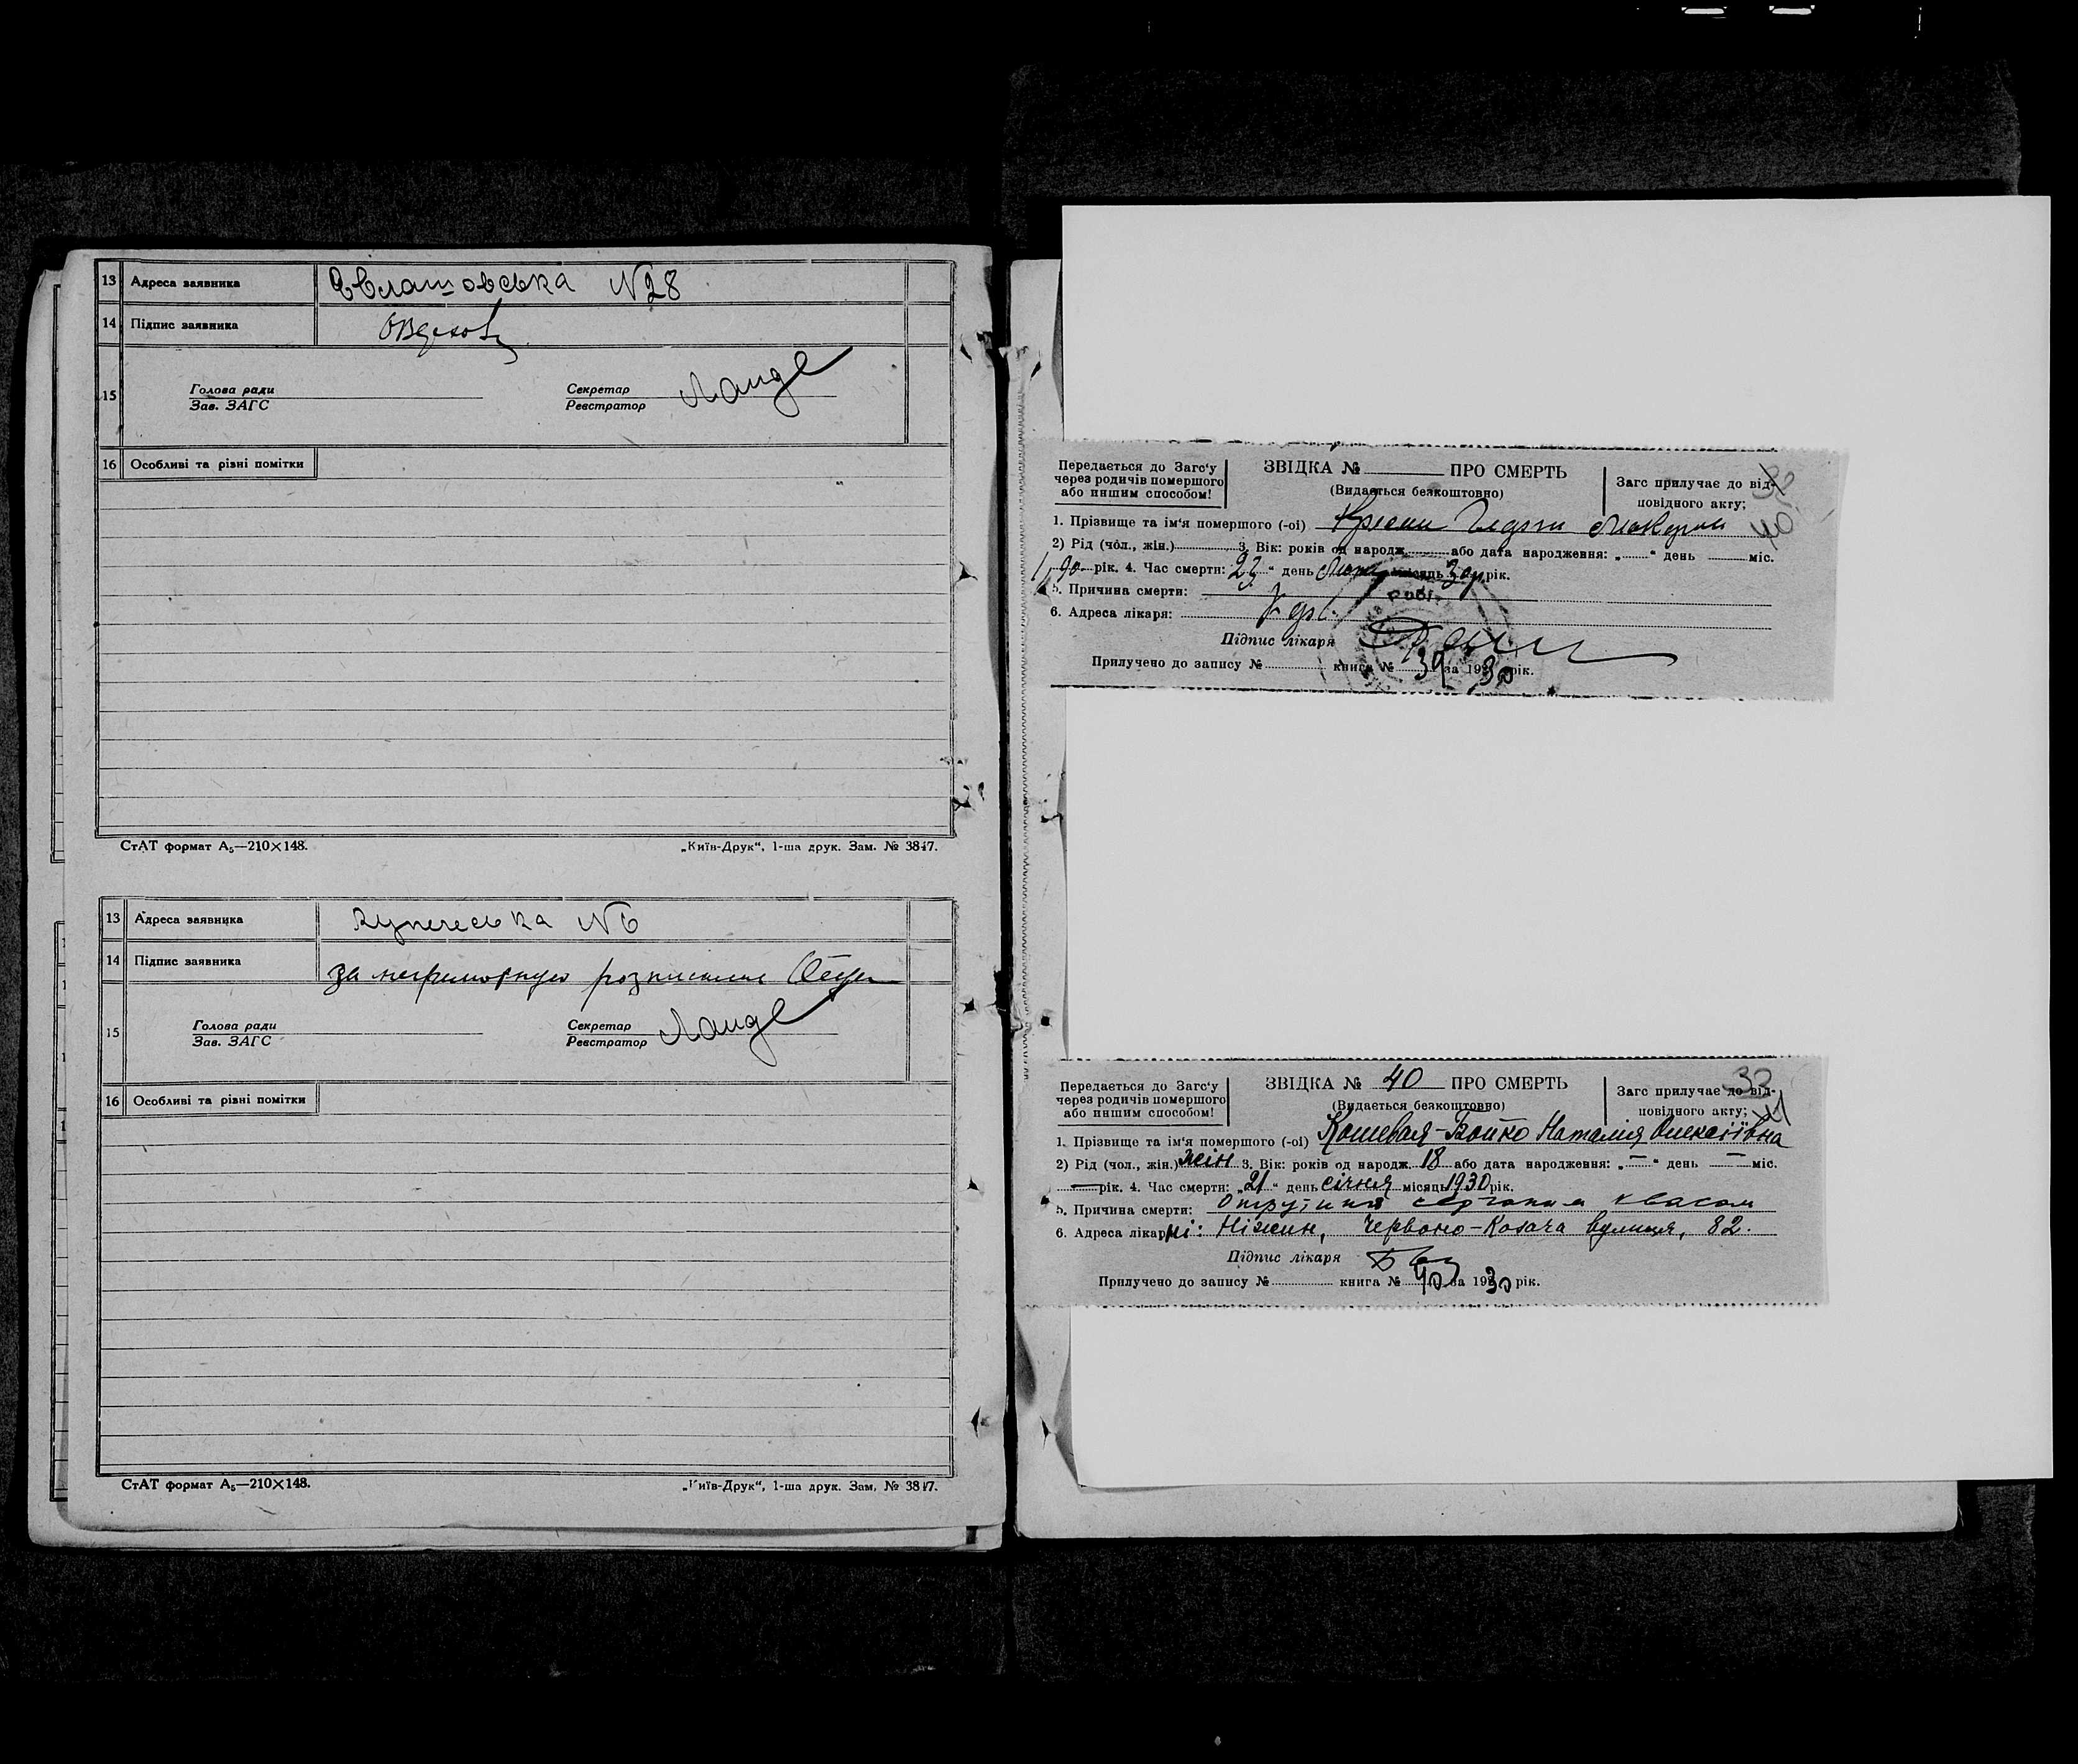 13 Адреса заявника Євлашовська №28
14 Підпис заявника
15 Голова ради Секретар Ланде
Зав. ЗАГС Реєстратор
16 Особливі та різні помітки
СтАТ формат А₅—210×148. „Київ-Друк“, 1-ша друк. Зам. № 3847.
13 Адреса заявника Купечеська №6
14 Підпис заявника за неграмотную
15 Голова ради Секретар Ланде
Зав. ЗАГС Реєстратор
16 Особливі та різні помітки
СтАТ формат А₅—210×148. „Київ-Друк“, 1-ша друк. Зам. № 3847.
Передається до Загс'у
через родичів помершого
або иншим способом!
ЗВІДКА № ПРО СМЕРТЬ
(Видається безкоштовно)
Загс прилучає до від-
повідного акту; 40
1. Прізвище та ім'я помершого (-ої)
2) Рід (чол., жін.) 3. Вік: років од народж. або дата народження: „ “ день міс.
рік. 4. Час смерти: 23 “ день місяць 30 рік.
5. Причина смерти:
6. Адреса лікаря:
Підпис лікаря
Прилучено до запису № книга № 39 за 1930 рік.
Передається до Загс'у
через родичів помершого
або иншим способом!
ЗВІДКА № 40 ПРО СМЕРТЬ
(Видається безкоштовно)
Загс прилучає до від-
повідного акту; 41
1. Прізвище та ім'я помершого (-ої) Кошевая-Бойко Наталія Олексіївна
2) Рід (чол., жін.) жін 3. Вік: років од народж. 18 або дата народження: „ — “ день — міс.
— рік. 4. Час смерти: „ 21 “ день січня місяць 1930 рік.
5. Причина смерти: Отруїння квасом
6. Адреса лікарні: Ніжин, Червоно-Козача вулиця, 82.
Підпис лікаря
Прилучено до запису № книга № 40 за 1930 рік.